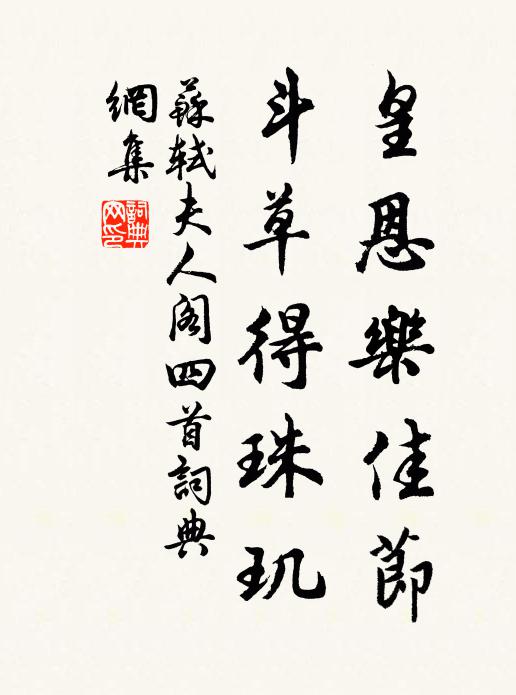 皇恩樂佳節
斗草得珠玑
蘇軾夫人阁四首詞典
網集
詞典
网印